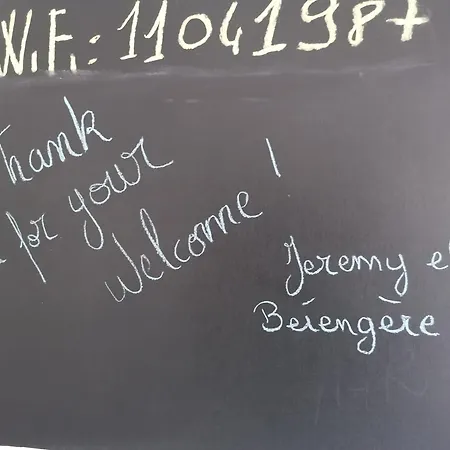 W.F.: 11041987
Thank
for your
Welcome!
Jeremy et
Béiengère